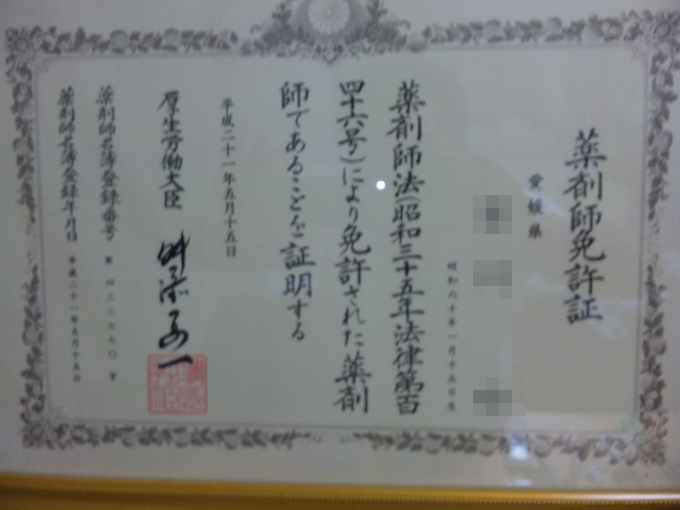 薬剤師免許証
愛媛県
昭和六十年一月十五日生
薬剤師法(昭和三十五年法律第百
四十六号)により免許された薬剤
師であることを証明する
平成二十一年五月十五日
厚生労働大臣 舛添要一
薬剤師名簿登録番号 第 四二二七七〇 号
薬剤師名簿登録年月日 平成二十一年五月十五日